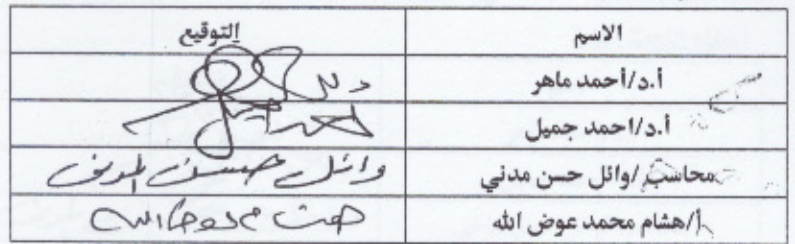 الاسم التوقيع
أ.د/أحمد ماهر
أ.د/احمد جميل
محاسب/وائل حسن مدني وائل حسن المدنى
أ/هشام محمد عوض الله